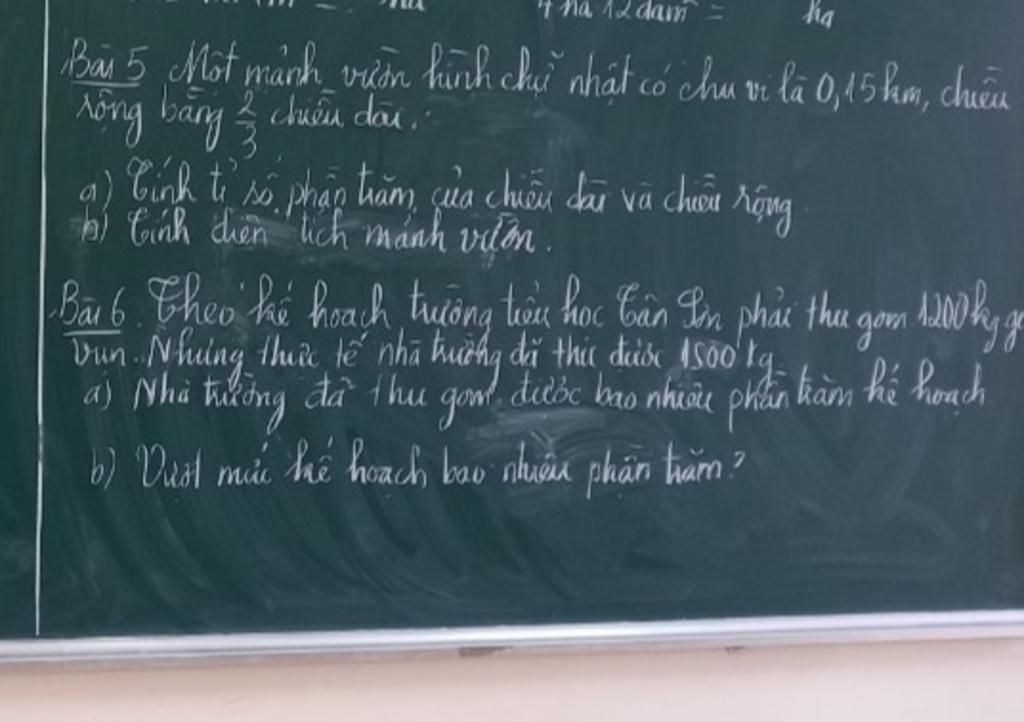 4 ha 12 dam² = ha
Bài 5 Một mảnh vườn hình chữ nhật có chu vi là 0,15km, chiều
rộng bằng 2/3 chiều dài.
a) Tính tỉ số phần trăm của chiều dài và chiều rộng
b) Tính diện tích mảnh vườn.
Bài 6. Theo kế hoạch trường tiểu học Tân phải thu gom 1200kg
vụn. Nhưng thực tế nhà trường đã thu được 1500 kg.
a) Nhà trường đã thu gom được bao nhiêu phần trăm kế hoạch
b) Vượt mức kế hoạch bao nhiêu phần trăm?